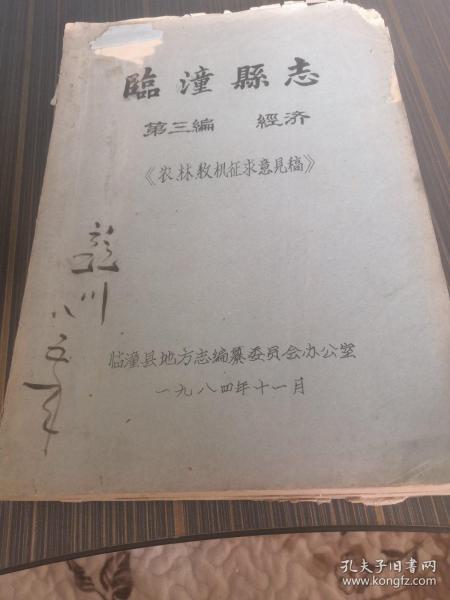 臨潼縣志
第三編 經济
《农.林.牧.机征求意見稿》
龍川
八五年
临潼县地方志编纂委员会办公室
一九八四年十一月
孔夫子旧书网
www.kongfz.com